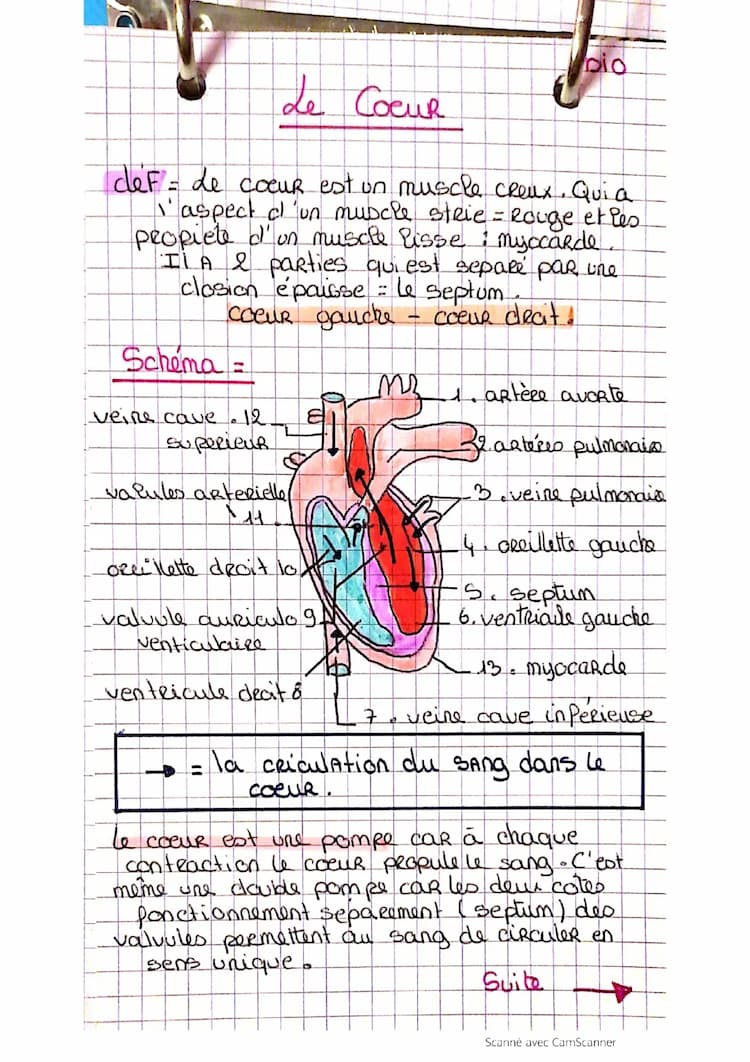 bio
Le Coeur
déf = Le coeur est un muscle creux. Qui a
l'aspect d'un muscle strie = Rouge et les
propiete d'un muscle lisse : myocarde.
Il A 2 parties qui est separé par une
closion épaisse = le septum.
coeur gauche - coeur droit.
Schéma =
1. artère avorte
veine cave . 12
superieur
2 artères pulmonaire
valules arterielle
11.
3. veine pulmonaire
4. oreillette gauche
oreillette droit 10
5. septum
valvule auriculo 9
venticulaire
6. ventriaile gauche
13. myocarde
ventricule droit 8
7. veine cave inférieuse
→ = la criculation du sang dans le
coeur.
Le coeur est une pompe car à chaque
contraction le coeur propule le sang. C'est
même une double pompe car les deux cotes
fonctionnement séparement (septum) des
valvules permettent au sang de circuler en
sens unique.
Suite →
Scanné avec CamScanner